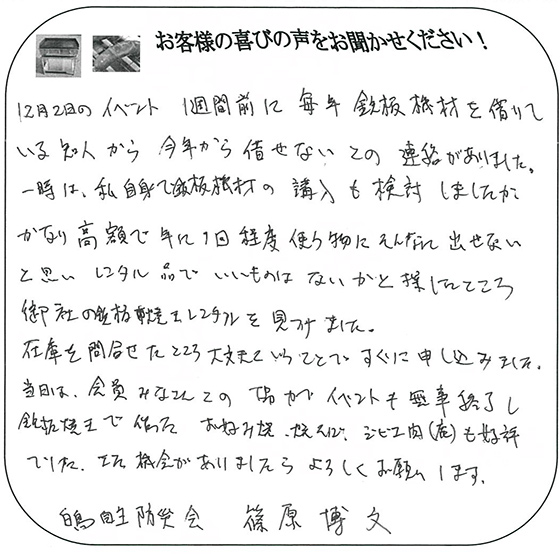 お客様の喜びの声をお聞かせください！
12月2日の イベント 1週間前に 毎年 鉄板機材を借りて
いる 知人 から 今年から 借せない との 連絡がありました。
一時は、私自身で鉄板機材の 購入も 検討 しましたが
かなり 高額で 年に1回 程度 使う物に そんなに 出せない
と思い レンタル 品で いいものは ないかと 探したところ
御社の鉄板焼きレンタルを 見つけました。
在庫を問合せたところ 大丈夫ということで すぐに 申し込みました。
当日は、会員みなさんとの 協力で イベントも 無事終了し
鉄板焼きで 作った お好み焼、焼そば、ジビエ肉(鹿)も好評
でした。また 機会が ありましたら よろしくお願いします。
自主防災会 篠原 博文